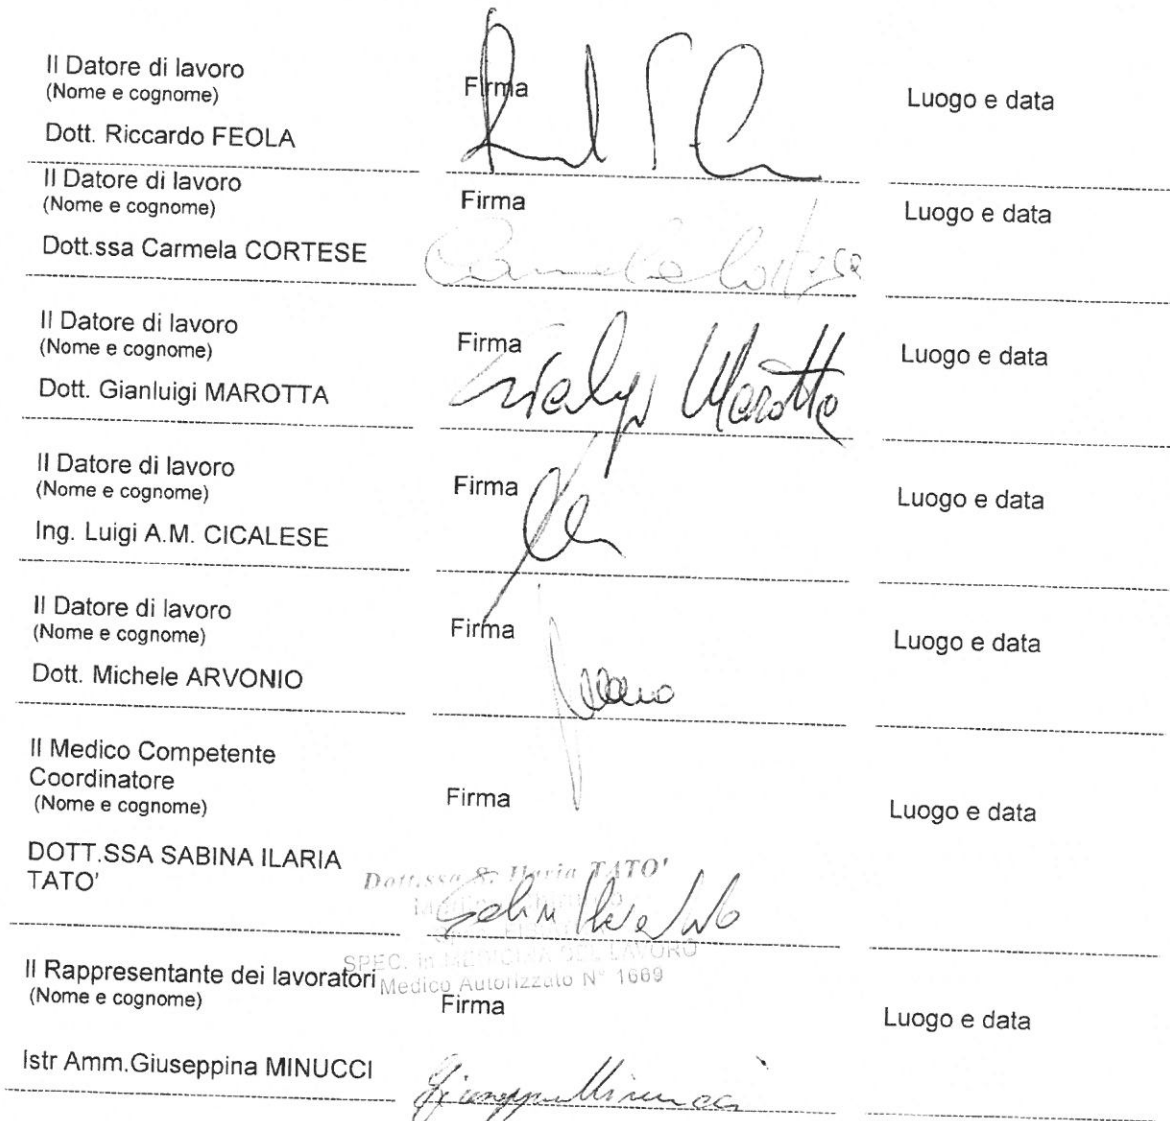 Il Datore di lavoro
(Nome e cognome)
Dott. Riccardo FEOLA
Firma
Luogo e data
Il Datore di lavoro
(Nome e cognome)
Dott.ssa Carmela CORTESE
Firma
Carmela Cortese
Luogo e data
Il Datore di lavoro
(Nome e cognome)
Dott. Gianluigi MAROTTA
Firma
Marotta
Luogo e data
Il Datore di lavoro
(Nome e cognome)
Ing. Luigi A.M. CICALESE
Firma
Luogo e data
Il Datore di lavoro
(Nome e cognome)
Dott. Michele ARVONIO
Firma
Luogo e data
Il Medico Competente
Coordinatore
(Nome e cognome)
DOTT.SSA SABINA ILARIA
TATO'
Firma
Dott.ssa S. Ilaria TATO'
SPEC. in MEDICINA DEL LAVORO
Medico Autorizzato N° 1669
Luogo e data
Il Rappresentante dei lavoratori
(Nome e cognome)
Istr Amm.Giuseppina MINUCCI
Firma
Minucci
Luogo e data